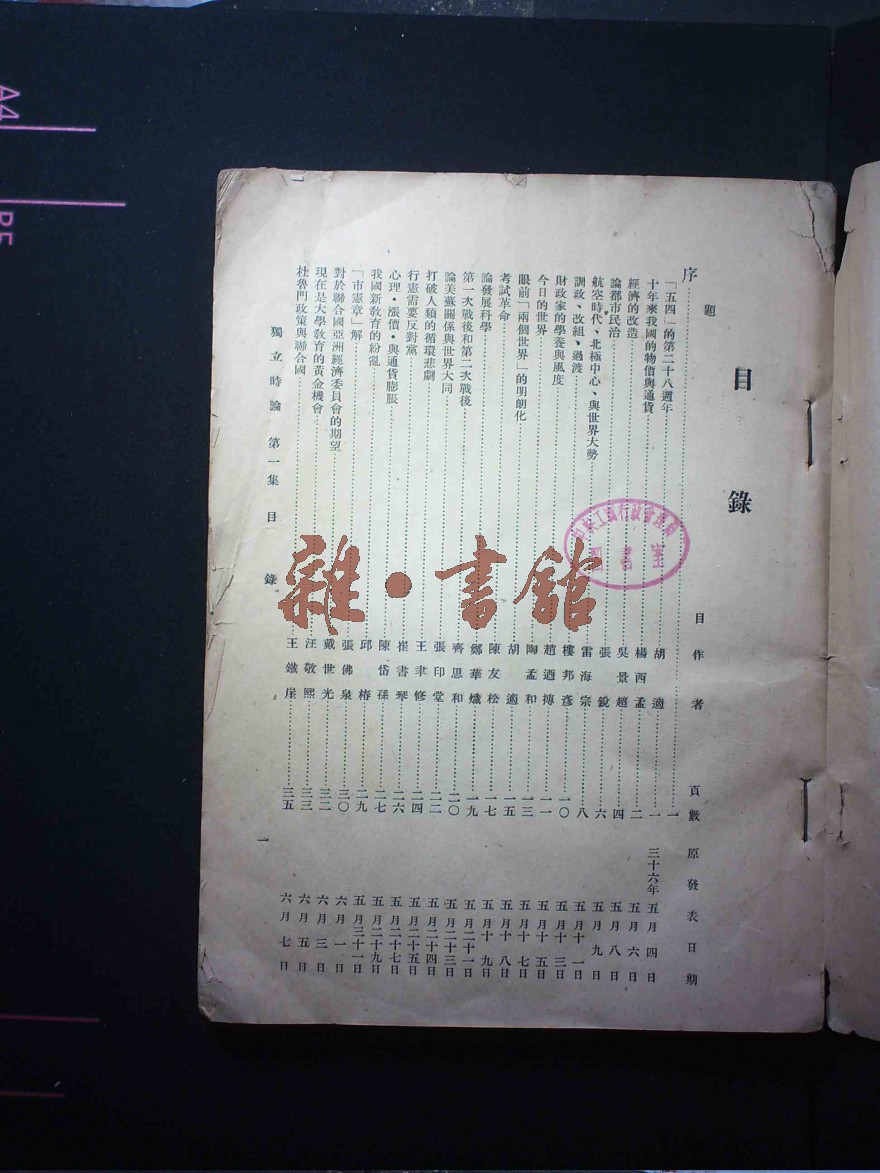 目錄
題目 作者 頁數 原發表日期
序……一
「五四」的第二十八週年……胡適……一 三十六年五月四日
十年來我國的物價與通貨……楊西孟……二 五月六日
經濟的改造……吳景超……四 五月八日
論都市民治……張銳……六 五月九日
航空時代、北極中心、與世界大勢……雷海宗……八 五月十一日
訓政、改組、過渡……樓邦彥……一〇 五月十三日
財政家的學養與風度……趙迺摶……一一 五月十五日
今日的世界……陶孟和……一三 五月十七日
眼前「兩個世界」的明朗化……胡適……一五 五月十八日
考試革命……陳友松……一七 五月十九日
論發展科學……鄭華熾……一九 五月二十一日
第一次戰後和第二次戰後……齊思和……二〇 五月二十三日
論美蘇關係與世界大同……張印堂……二二 五月二十四日
打破人類的循環悲劇……王聿修……二四 五月二十五日
行憲需要反對黨……崔書琴……二六 五月二十七日
心理·漲價·與通貨膨脹……陳岱孫……二七 五月二十九日
我國新教育的紛亂……邱椿……二九 五月三十一日
「市憲章」解……張佛泉……三〇 六月一日
對於聯合國亞洲經濟委員會的期望……戴世光……三二 六月三日
現在是大學教育的黃金機會……汪敬熙……三三 六月五日
杜魯門政策與聯合國……王鐵崖……三五 六月七日
獨立時論 第一集 目錄
一
雜·書館
A4